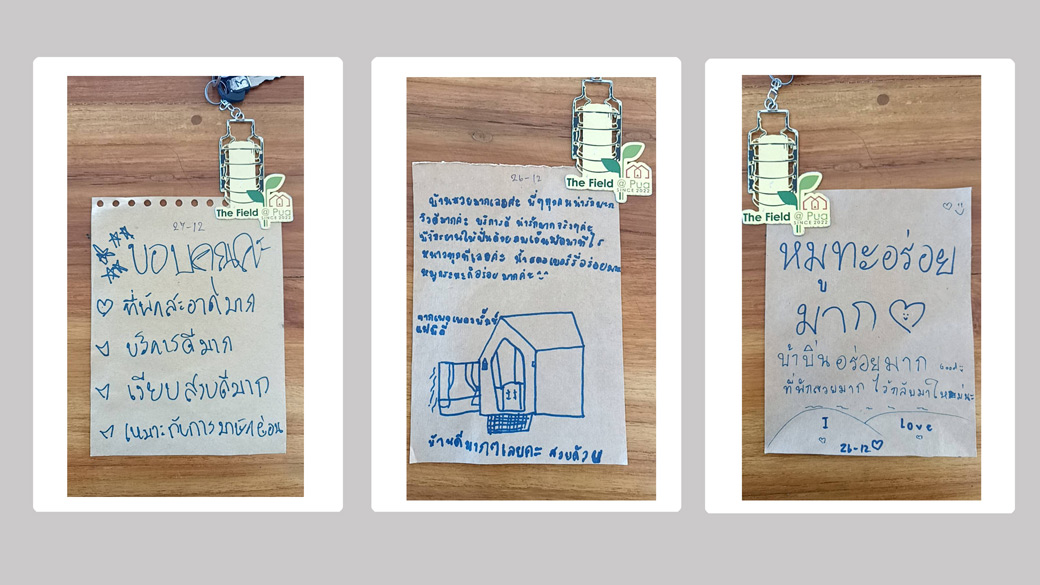 The Field @ Pua
SINCE 2022
27-12
ขอบคุณค่ะ
ที่พักสะอาดมาก
บริการดีมาก
เงียบสงบดีมาก
เหมาะกับการมาพักผ่อน
The Field @ Pua
SINCE 2022
26-12
บ้านสวยมากเลยค่ะ พี่ๆทุกคนน่ารักมาก
วิวดีมากค่ะ บริการดี น่ารักมากจริงๆค่ะ
มีจักรยานให้ปั่นด้วย
เลยค่ะ อร่อยมาก
หมูกระทะก็อร่อยมากค่ะ
บ้านดีมากๆเลยค่ะ สวยด้วย
The Field @ Pua
SINCE 2022
หมูทะอร่อย
มาก
น้ำปั่นอร่อยมาก Good
ที่พักสวยมาก ไว้กลับมาใหม่นะ
I love
26-12